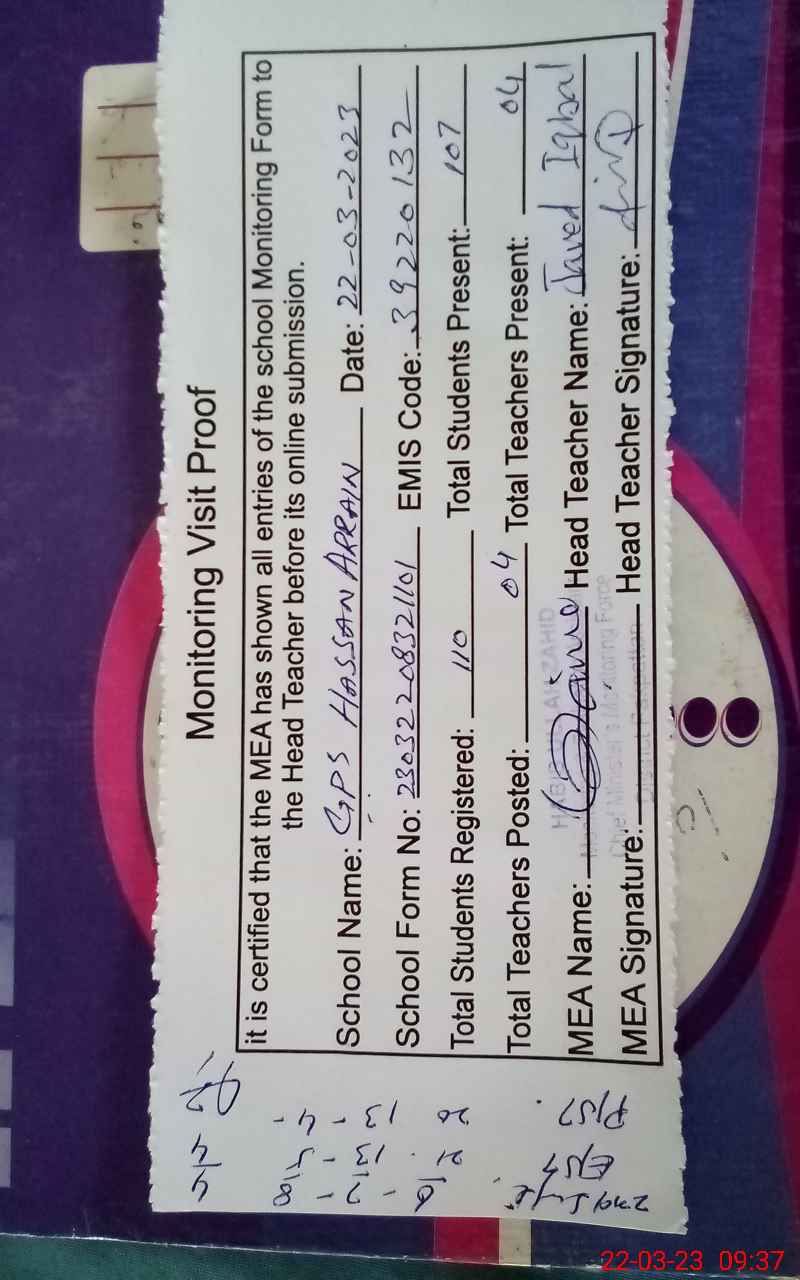 Monitoring Visit Proof
it is certified that the MEA has shown all entries of the school Monitoring Form to
the Head Teacher before its online submission.
School Name: GPS HASSAN ARRAIN Date: 22-03-2023
School Form No: 23032208321101 EMIS Code: 39220132
Total Students Registered: 110 Total Students Present: 107
Total Teachers Posted: 04 Total Teachers Present: 04
MEA Name: Head Teacher Name: Javed Iqbal
MEA Signature: Head Teacher Signature:
Chief Minister's Monitoring Force
District Pakpattan
22-03-23 09:37